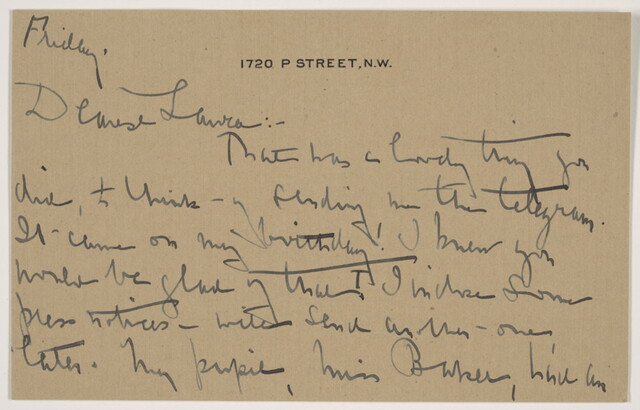 Friday.
1720 P STREET, N.W.
Dearest Laura:-
That was a lovely thing you
did, to think - of sending me the telegram.
It came on my birthday! I knew you
would be glad of that! I inclose some
press notices - will send another - one
later. My pupil, Miss Baker, had an